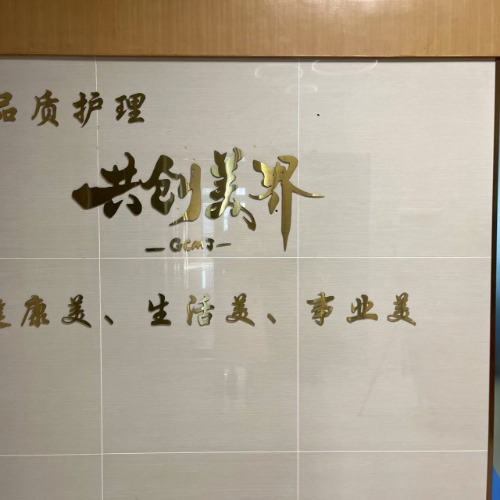 品质护理
共创美界
GCMJ
健康美、生活美、事业美